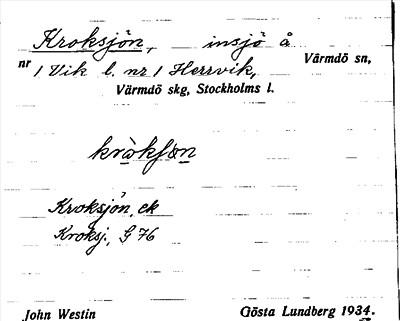 Kroksjön, insjö å Värmdö sn,
nr 1 Vik l. nr 1 Herrvik,
Värmdö skg, Stockholms l.
kròksȯn
Kroksjön, ek
Kroksj., G 76
John Westin Gösta Lundberg 1934.